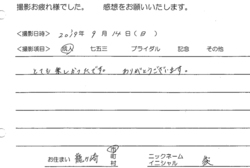 撮影お疲れ様でした。 感想をお願いいたします。
撮影日時 2019年 9月 14日(日)
撮影項目 成人 七五三 ブライダル 記念 その他
とても楽しかったです。 ありがとうございます。
お住まい 龍ケ崎 市 町 村 ニックネーム イニシャル